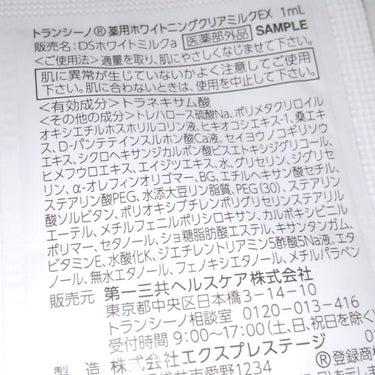 トランシーノ®薬用ホワイトニングクリアミルクEX 1mL
販売名:DSホワイトミルクa 医薬部外品 SAMPLE
<ご使用法>適量を取り、肌にやさしくなじませて下さい。
肌に異常が生じていないかよく注意してご使用
下さい。肌に合わないときは、使用を中止して下さい。
<有効成分>トラネキサム酸
<その他の成分>トレハロース硫酸Na、ポリメタクリロイル
オキシエチルホスホリルコリン液、ヒキオコシエキス-1、桑エキ
ス、D-パンテテインスルホン酸Ca液、セイヨウノコギリソウ
エキス、シクロヘキサンジカルボン酸ビスエトキシジグリコール、
ヒメフウロエキス、エイジツエキス、水、グリセリン、ジグリセ
リン、α-オレフィンオリゴマー、BG、エチルヘキサン酸セチル、
ステアリン酸PEG、水添大豆リン脂質、PEG(30)、ステアリン
酸ソルビタン、ポリオキシブチレンポリグリセリルステアリル
エーテル、メチルフェニルポリシロキサン、カルボキシビニル
ポリマー、セタノール、ショ糖脂肪酸エステル、キサンタンガム、
ビタミンE、水酸化K、ジエチレントリアミン5酢酸5Na液、エタ
ノール、無水エタノール、フェノキシエタノール、メチルパラベン
販売元 第一三共ヘルスケア株式会社
東京都中央区日本橋3-14-10
トランシーノ相談室 0120-013-416
受付時間 9:00~17:00(土、日、祝日を除く)
製造 株式会社エクスプレステージ ®登録商
愛野1234